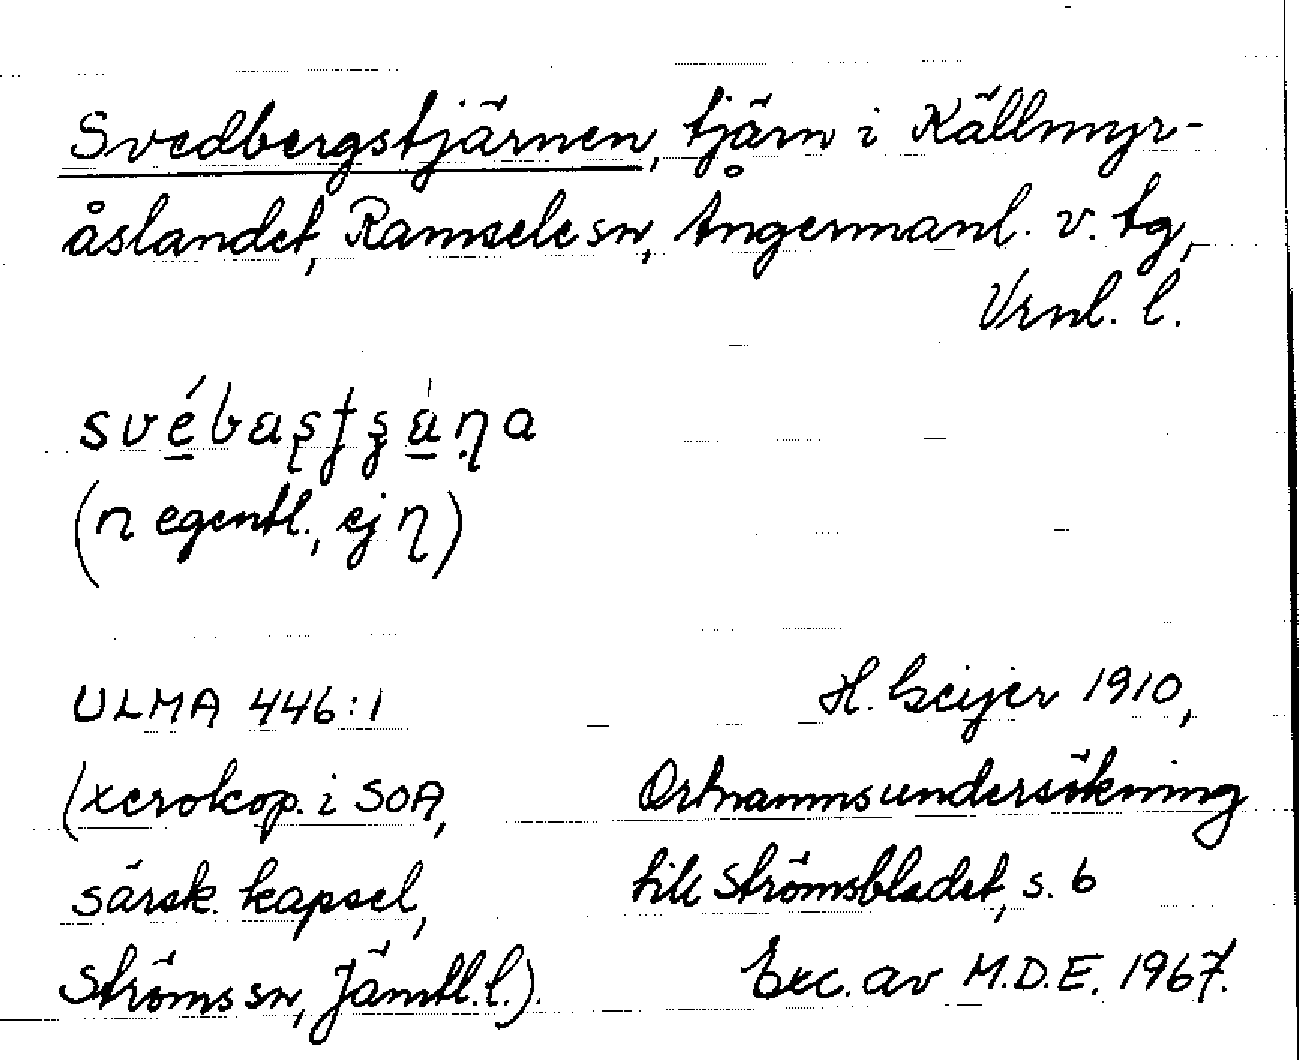 Svedbergstjärnen, tjärn i Källmyr-
åslandet, Ramsele sn, Ångermanl. v. tg,
Vrnl. l.
(n egentl., ej η)
ULMA 446:1
H. Geijer 1910,
(xerokop. i SOA,
Ortnamnsundersökning
särsk. kapsel,
till Strömsbladet, s. 6
Ströms sn, Jämtl. l.).
Exc. av M.D.E. 1967.